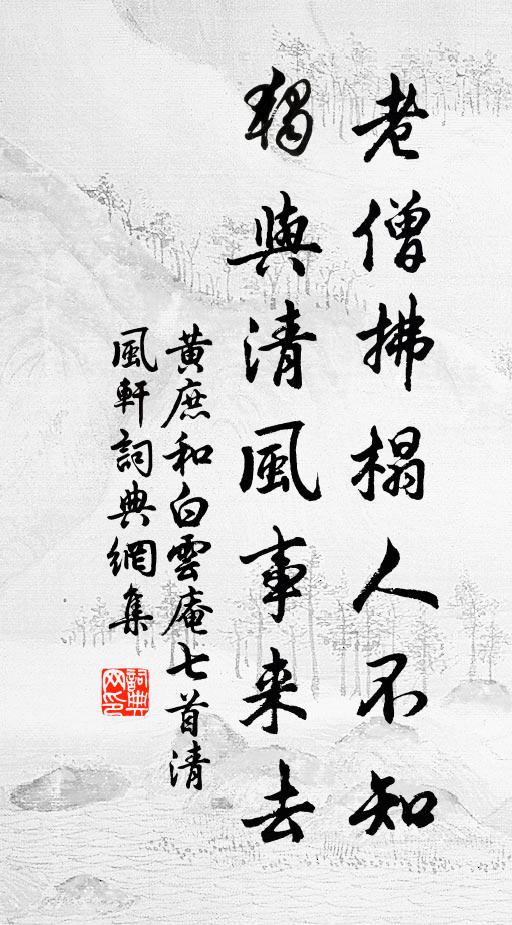 老僧拂榻人不知
獨與清風事来去
黃庶和白雲庵七首清
風軒詞典網集
詞典网印